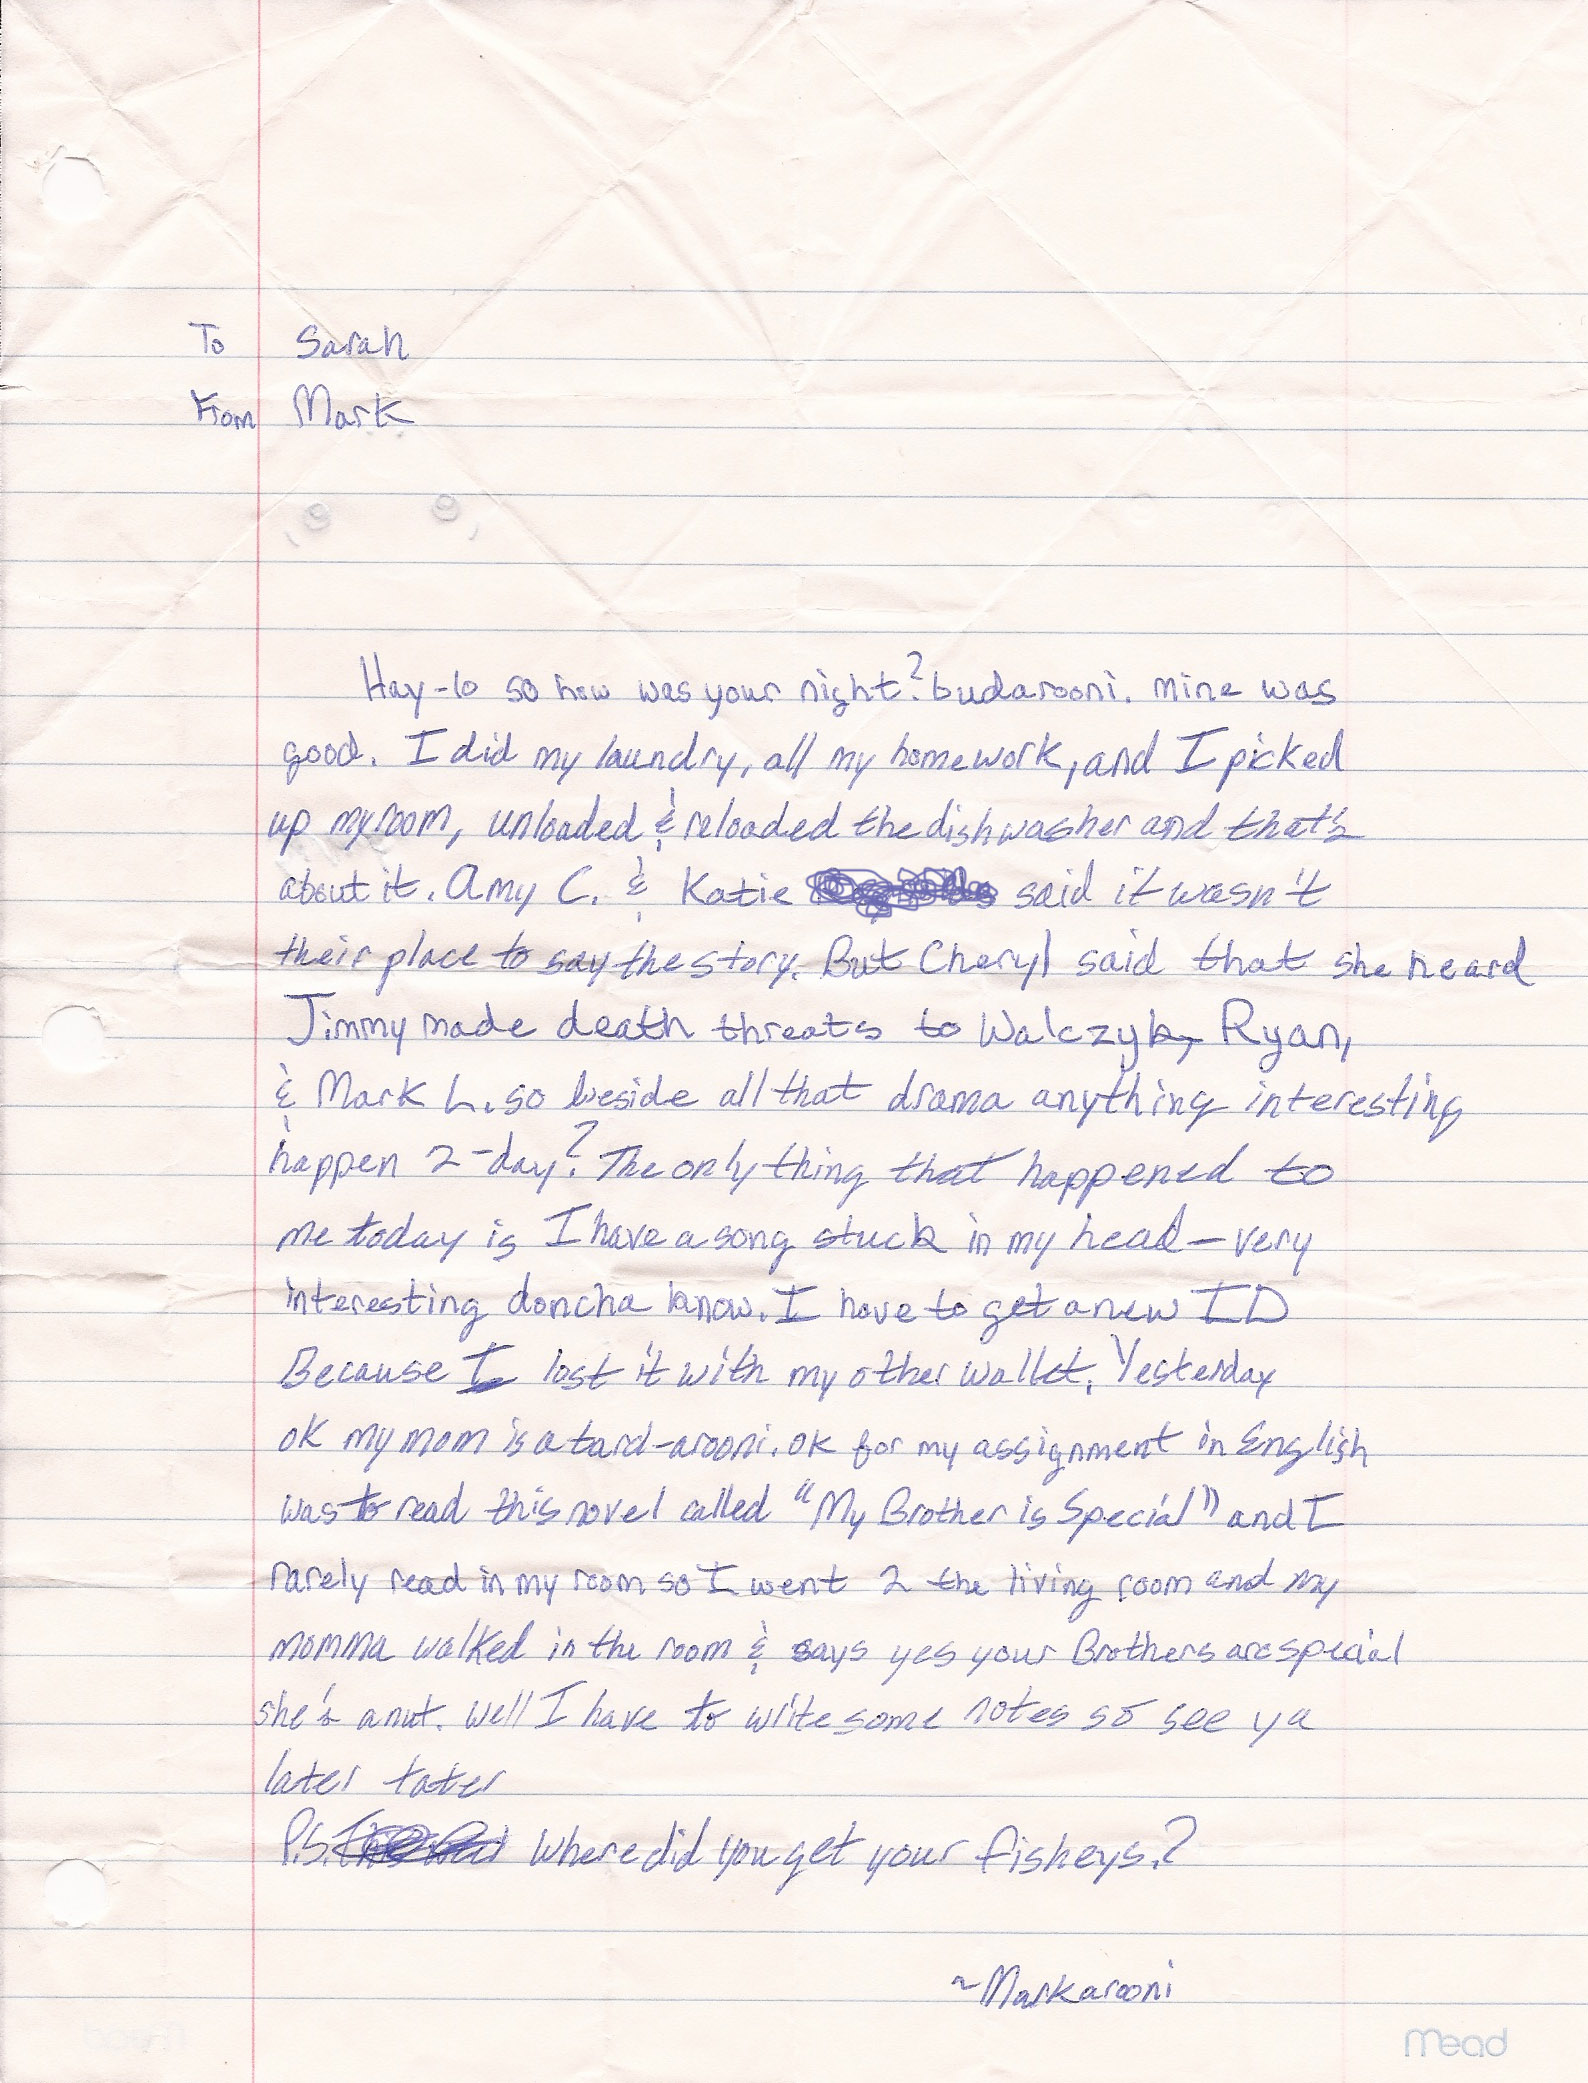 To Sarah
From Mark
Hay-lo so how was your night? budarooni. mine was
good. I did my laundry, all my homework, and I picked
up my room, unloaded & reloaded the dishwasher and that's
about it. Amy C. & Katie said it wasn't
their place to say the story. But Cheryl said that she heard
Jimmy made death threats to Walczyk, Ryan,
& Mark L. so beside all that drama anything interesting
happen 2-day? The only thing that happened to
me today is I have a song stuck in my head - very
interesting doncha know. I have to get a new ID
Because I lost it with my other wallet. Yesterday
ok my mom is a tard-arooni. ok for my assignment in English
was to read this novel called "My Brother is Special" and I
rarely read in my room so I went 2 the living room and my
momma walked in the room & says yes your Brothers are special
she's a nut. well I have to write some notes so see ya
later tater
P.S. Where did you get your fisheys?
~Markarooni
Mead